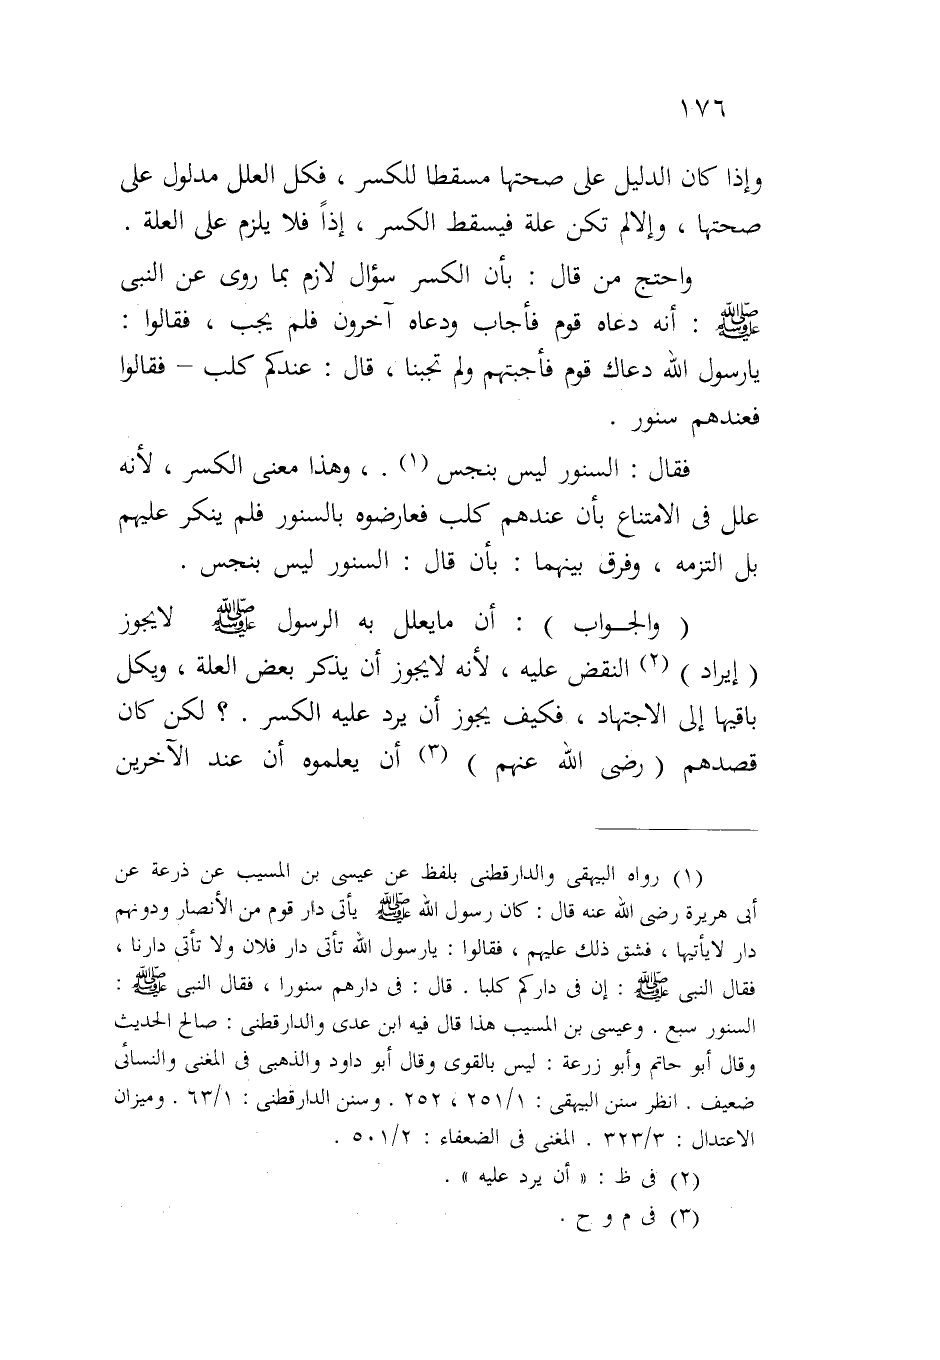 ١٧٦
وإذا كان الدليل على صحتها مسقطا للكسر ، فكل العلل مدلول على
صحتها ، وإلالم تكن علة فيسقط الكسر ، إذاً فلا يلزم على العلة .
واحتج من قال : بأن الكسر سؤال لازم بما روى عن النبى
ﷺ : أنه دعاه قوم فأجاب ودعاه آخرون فلم يجب ، فقالوا :
يارسول الله دعاك قوم فأجبتهم ولم تجبنا ، قال : عندكم كلب – فقالوا
فعندهم سنور .
فقال : السنور ليس بنجس (١) . ، وهذا معنى الكسر ، لأنه
علل فى الامتناع بأن عندهم كلب فعارضوه بالسنور فلم ينكر عليهم
بل التزمه ، وفرق بينهما : بأن قال : السنور ليس بنجس .
( والجـواب ) : أن مايعلل به الرسول ﷺ لايجوز
( إيراد ) (٢) النقض عليه ، لأنه لايجوز أن يذكر بعض العلة ، ويكل
باقيها إلى الاجتهاد ، فكيف يجوز أن يرد عليه الكسر . ؟ لكن كان
قصدهم ( رضى الله عنهم ) (٣) أن يعلموه أن عند الآخرين
(١) رواه البيهقى والدارقطنى بلفظ عن عيسى بن المسيب عن ذرعة عن
أبى هريرة رضى الله عنه قال : كان رسول الله ﷺ يأتى دار قوم من الأنصار ودونهم
دار لايأتيها ، فشق ذلك عليهم ، فقالوا : يارسول الله تأتى دار فلان ولا تأتى دارنا ،
فقال النبى ﷺ : إن فى داركم كلبا . قال : فى دارهم سنورا ، فقال النبى ﷺ :
السنور سبع . وعيسى بن المسيب هذا قال فيه ابن عدى والدارقطنى : صالح الحديث
وقال أبو حاتم وأبو زرعة : ليس بالقوى وقال أبو داود والذهبى فى المغنى والنسائى
ضعيف . انظر سنن البيهقى : ٢٥١/١ ، ٢٥٢ . وسنن الدارقطنى : ٦٣/١ . وميزان
الاعتدال : ٣٢٣/٣ . المغنى فى الضعفاء : ٥٠١/٢ .
(٢) فى ظ : « أن يرد عليه » .
(٣) فى م و ح .